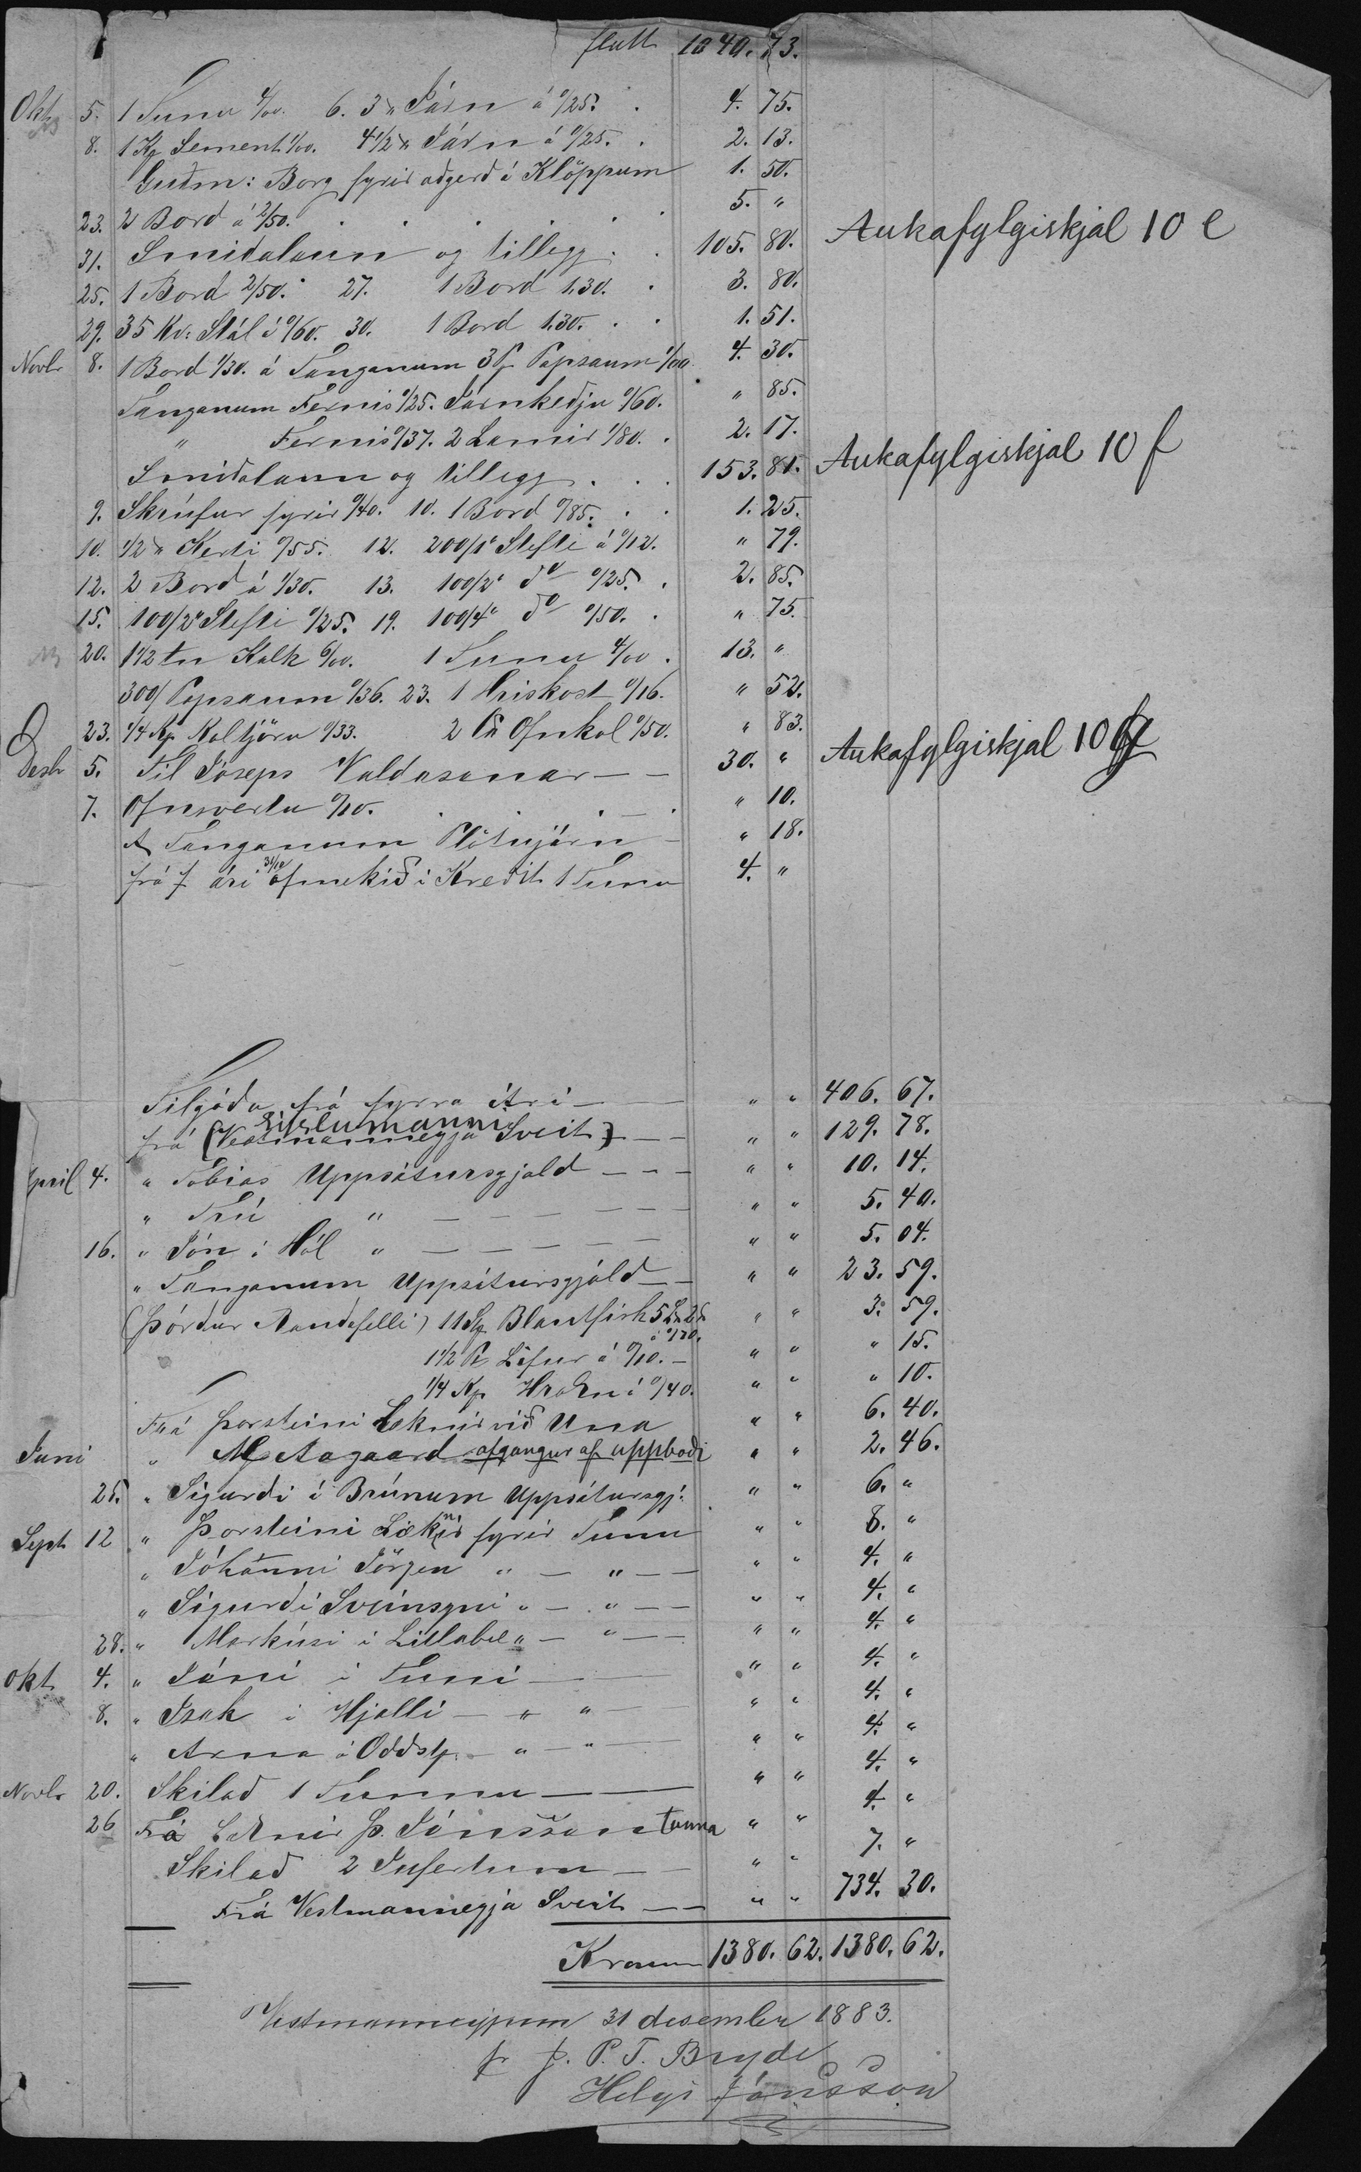 flutt 1040. 73.
Okt 5. 1 Tunna 4/00. 6. 3 " Járn á 0/25. 4. 75.
8. 1 Kp Sement 1/00. 4 1/2 " Járn á 0/25. 2. 13.
Guðm: Borg fyrir aðgerð í Klöppum 1. 50.
23. 2 Borð á 2/50. 5. "
31. Smiðalaun og tillegg 105. 80. Aukafylgiskjal 10 e
25. 1 Borð 2/50. 27. 1 Borð 1.30. 3. 80.
29. 35 Kv: Stál á 0/60. 30. 1 Borð 1.30. 1. 51.
Novbr 8. 1 Borð 1/30. á Tanganum 3 Papsaum 1/00. 4. 30.
Tanganum Fernis 0/25. Járnkeðju 0/60. " 85.
" Fernis 0/37. 2 Lamir 1/80. 2. 17.
Smiðalaun og tillegg 153. 81. Aukafylgiskjal 10 f
9. Skrúfur fyrir 0/40. 10. 1 Borð 0/85. 1. 25.
10. 1/2 " Kerti 0/55. 12. 200/1" Stefti á 0/12. " 79.
12. 2 Borð á 1/30. 13. 100/2" do 0/25. 2. 85.
15. 100/2" Stefti 0/25. 19. 100/4" do 0/50. " 75.
20. 1 1/2 tn Kalk 6/00. 1 Tunna 4/00. 13. "
300/ Papsaum 0/36. 23. 1 Hriskost 0/16. " 52.
23. 1/4 Kp Koltjöru 0/33. 2 Ofnkol 0/50. " 83.
Desbr 5. Til Jóseps Valdasonar 30. " Aukafylgiskjal 10 g
7. Ofnsverta 0/10. " 10.
A Tanganum Plötujárn " 18.
frá f. ári 31/12 ofmekið í Kredit 1 Tunna 4. "
Tilgóða frá fyrra Ári " " 406. 67.
sislumanni
frá (Vestmannegja Sveit) " " 129. 78.
April 4. " Tobias Uppsátursgjald " " 10. 14.
" Trú " " " 5. 40.
16. " Jón í Hól " " " 5. 04.
" Tanganum Uppsátursgjáld " " 23. 59.
(Þórdur Randefelli) 11 Blautfisk " " 3. 59.
á 0/70.
1 1/2 Lifur á 0/10. " " " 15.
1/4 Kp Hrogn á 0/40. " " " 10.
Frá Þorsteini Læknir við Una " " 6. 40.
Juni " M Aagaard afgangur af uppboði " " 2. 46.
25. " Sigurði í Brúnum Uppsátursgj: " " 6. "
Sept 12 " Þorsteini Læknir fyrir Tunnu " " 8. "
" Jóhanni Jörgen " " " " 4. "
" Sigurði Sveinsyni " " " " 4. "
28. " Markúsi í Litlabæ " " " " 4. "
Okt 4. " Jóni í Túni " " 4. "
8. " Isak í Hjalli " " " " 4. "
" Arna á Oddst. " " " " 4. "
Novbr 20. Skilad 1 Tunna " " 4. "
26 Frá Læknir Þ. Jónsson tunna " " 4. "
Skilad 2 " " 7. "
Frá Vestmannegja Sveit " " 734. 30.
Kronur 1380. 62. 1380. 62.
Vestmanneyjum 31 desember 1883.
pr J. P. T. Bryde
Helgi Jónsson